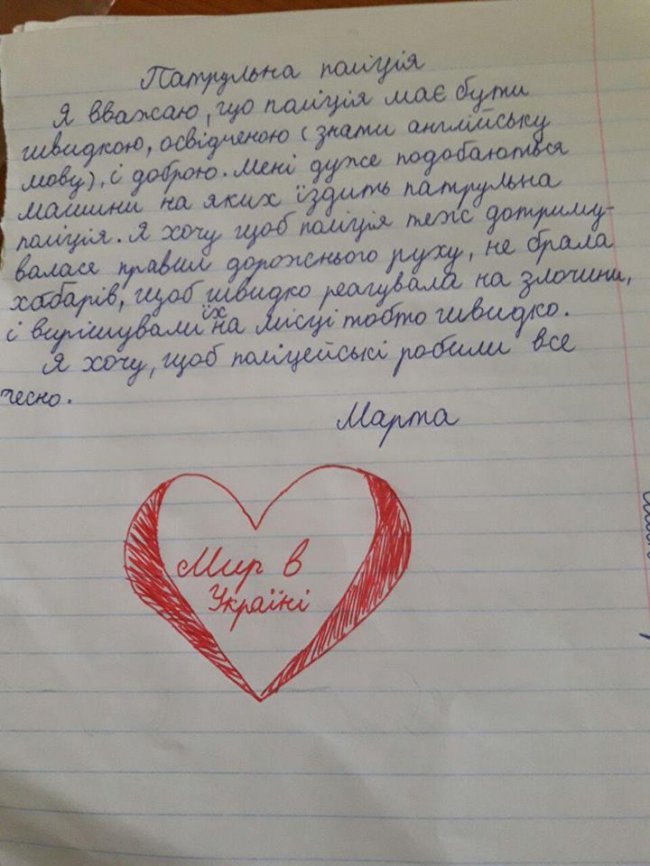 Патрульна поліція
Я вважаю, що поліція має бути
швидкою, освідченою (знати англійську
мову), і доброю. Мені дуже подобаються
машини на яких їздить патрульна
поліція. Я хочу щоб поліція теж дотриму-
валасе правил дорожнього руху, не брала
хабарів, щоб швидко реагувала на злочини,
і вирішували їх на місці тобто швидко.
Я хочу, щоб поліцейські робили все
чесно.
Марта
Мир в
Україні